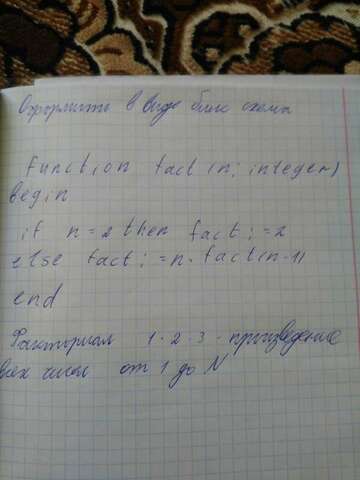 Оформить в виде блок схема
function fact (n; integer)
begin
if n=2 then fact:=2
else fact:=n·fact(n-1)
end
Факториал 1·2·3· произведение
всех чисел от 1 до N